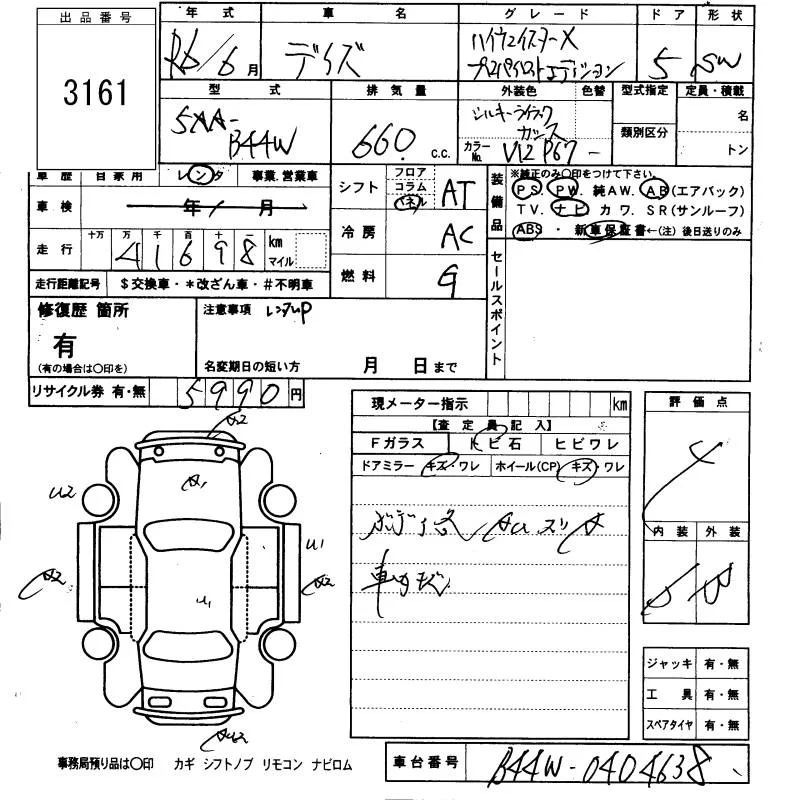 出品番号
3161
年式
R6/6月
車名
デイズ
グレード
ハイウェイスターX
プロパイロットエディション
ドア
5
形状
SW
型式
5AA-
B44W
排気量
660 c.c.
外装色
色替
シルキーライラック
カラーNo.
型式指定
類別区分
定員・積載
名
トン
車歴 自家用 レンタ 事業.営業車
車検
年 月
走行
十万 万 千 百 十 一
4 1 6 9 8 km
マイル
走行距離記号 $交換車・*改ざん車・#不明車
シフト
フロア
コラム
パネル
AT
冷房
AC
燃料
G
装備品
※純正のみ〇印をつけて下さい。
PS PW. 純AW. AB(エアバック)
TV. ナビ カワ. SR(サンルーフ)
ABS ・ 新車保証書←(注) 後日送りのみ
セールスポイント
修復歴 箇所
有
(有の場合は〇印を)
注意事項 レンタUP
名変期日の短い方 月 日まで
リサイクル券 有・無 5990円
現メーター指示 km
【査定員記入】
Fガラス トビ石 ヒビワレ
ドアミラー キズ・ワレ ホイール(CP) キズ・ワレ
評価点
4
内装 外装
A2
A1
U2
U1
A2
A2
U1
ジャッキ 有・無
工具 有・無
スペアタイヤ 有・無
事務局預り品は〇印 カギ シフトノブ リモコン ナビロム
車台番号
B44W-0404638